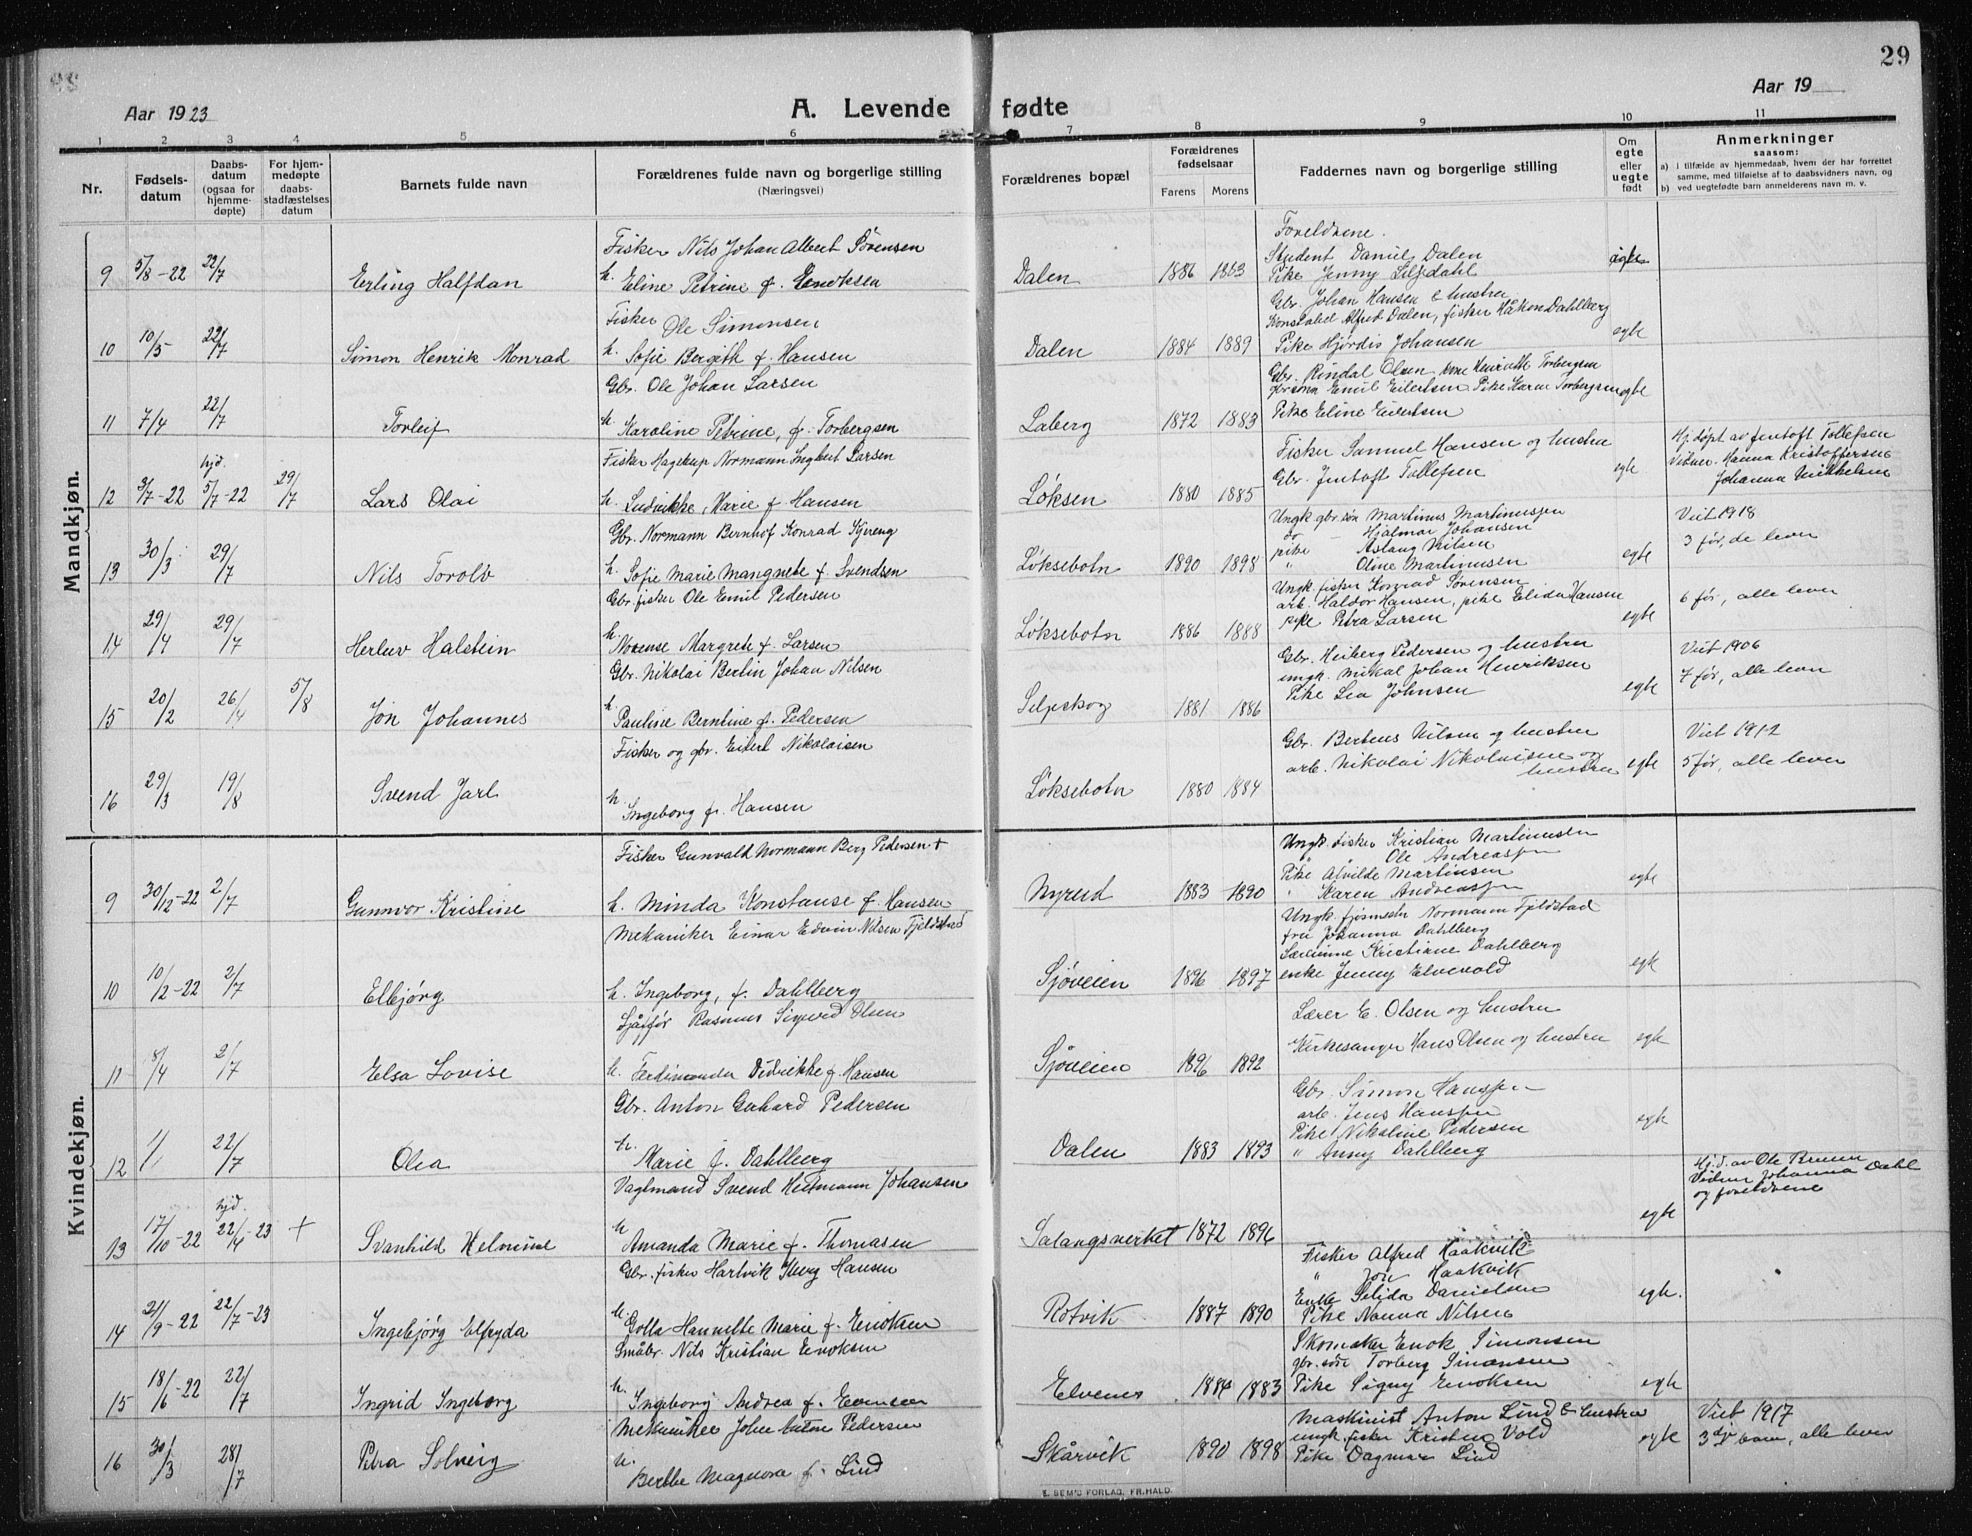 29
Aar 1923
A. Levende fødte
Aar 19
1 2 3 4 5 6 7 8 9 10 11
Nr.
Fødsels-
datum
Daabs-
datum
(ogsaa for
hjemme-
døpte)
For hjem-
medøpte
daabs-
stadfæstelses
datum
Barnets fulde navn
Forældrenes fulde navn og borgerlige stilling
(Næringsvei)
Forældrenes bopæl
Forældrenes
fødselsaar
Farens Morens
Faddernes navn og borgerlige stilling
Om
egte
eller
uegte
født
Anmerkninger
saasom:
a) i tilfælde av hjemmedaab, hvem der har forrettet
samme, med tilføielse af to daabsvidners navn, og
b) ved uegtefødte barn anmelderens navn m. v.
Mandkjøn.
9 5/8-22 22/7 Erling Halfdan
Fisker Nils Johan Albert Sørensen
h. Eline Petrine f. Enoksen
Dalen 1886 1883
Foreldrene.
Student Daniel Dalen
Pike Jenny Liljedahl
egte
10 10/5 22/7 Simon Henrik Monrad
Fisker Ole Simonsen
h. Sofie Bergith f. Hansen
Dalen 1884 1889
Gbr. Johan Hansen & hustru
Konstabel Alfred Dalen, fisker Håkon Dahlberg
Pike Hjørdis Johansen
egte
11 7/4 22/7 Torleif
Gbr. Ole Johan Larsen
h. Karoline Petrine, f. Torbergsen
Laberg 1872 1883
Gbr. Rindal Olsen
Emil Eilertsen Pike Karen Torbergsen
Pike Eline Eilertsen
egte
12 3/7-22 hjd. 5/7-22 29/7 Lars Olai
Fisker Hagerup Normann Ingbert Larsen
h. Ludvikke, Marie f Hansen
Løksen 1880 1885
Fisker Samuel Hansen og hustru
Gbr. Jentoft Tollefsen
egte
Hj. døpt av Jentoft Tollefsen
Vitner. Hanna Kristoffersen
Johanna Mikkelsen
13 30/3 29/7 Nils Torolv
Gbr. Normann Bernhof Konrad Kjæreng
h. Sofie Marie Mangnete f Svendsen
Løksebotn 1890 1898
Ungk. gbr. søn Martinus Martinussen
do - Hjalmar Johansen
pike Aslaug Nilsen
" Oline Martinusen
egte
Viet 1918
3 før, de lever
14 29/4 29/7 Herluv Halstein
Gbr. fisker Ole Emil Pedersen
h. Margrete f. Larsen
Løksebotn 1886 1888
Ungk. fisker Konrad Sørensen
arb. Haldor Hansen, pike Elida Hansen
pike Petra Larsen
egte
6 før, alle lever
15 20/2 26/4 5/8 Jon Johannes
Gbr. Nikolai Berlin Johan Nilsen
h. Pauline Berntine f. Pedersen
Selpeskog 1881 1886
Gbr. Heiberg Pedersen og hustru
ungk. Mikal Johan Henriksen
Pike Lea Johnsen
egte
Viet 1906
7 før, alle lever
16 29/3 19/8 Svend Jarl
Fisker og gbr. Eilert Nikolaisen
h. Ingeborg f. Hansen
Løksebotn 1880 1884
Gbr. Berteus Nilsen og hustru
arb. Nikolai Nikolaisen og
hustru
egte
Viet 1912
5 før, alle lever
Kvindekjøn.
9 30/12-22 2/7 Gunnvor Kristine
Fisker Gunvald Normann Berg Pedersen +
h. Minda Konstanse f. Hansen
Nyrud 1883 1890
Ungk. fisker Kristian Martinusen
" Ole Andreassen
Pike Alvilde Martinsen
" Karen Andreassen
egte
10 10/2-22 2/7 Elbjørg
Mekaniker Einar Edvin Nilsen Fjeldstad
h. Ingeborg, f. Dahlberg
Sjøveien 1896 1897
Ungk. fjøsmester Normann Fjeldstad
fru Johanna Dahlberg
Lærerinne Kristiane Dahlberg
enke Jenny Elvevold
egte
11 8/4 2/7 Elsa Lovise
Sjåfför Rasmus Sigurd Olsen
h. Ferdinanda Didrikke f. Hansen
Sjøveien 1896 1892
Lærer E. Olsen og hustru
Kirkesanger Hans Olsen og hustru
egte
12 1/1 22/7 Olea
Gbr. Anton Gerhard Pedersen
h. Marie f. Dahlberg
Dalen 1883 1893
Gbr. Simon Hanssen
arb. Jens Hanssen
Pike Nikoline Pedersen
" Anny Dahlberg
egte
13 17/10-22 hjd. 22/4-23 + Svanhild Helmine
Vagtmand Svend Heitmann Johansen
h. Amanda Marie f. Thomasen
Salangsverket 1872 1896
egte
Hj.d. av Ole Bruun
Vidner Johanna Dahl
og foreldrene
14 21/9-22 22/7-23 Ingebjørg Elfryda
Gbr. fisker Hartvik Berg Hansen
h. Golla Hannette Marie f. Enoksen
Rotvik 1887 1890
Fisker Alfred Haakvik
" Jon Haakvik
Enke Selida Danielsen
Pike Nanna Nilsen
egte.
15 18/6-22 22/7 Ingrid Ingeborg
Småbr. Nils Kristian Enoksen
h. Ingeborg Andrea f. Evensen
Elvenes 1884 1883
Skomaker Enok Simonsen
gbr. søn Torberg Simonsen
Pike Signy Enoksen
egte
16 30/3 28/7 Petra Solveig
Mekaniker Johan Anton Pedersen
h. Berthe Magnora f. Lind
Skårvik 1890 1898
Maskinist Anton Lind & hustru
ungk. fisker Kristen Vold
Pike Dagmar Lind
egte
Viet 1917
3dje barn, alle lever
E. SEM'S FORLAG, FR.HALD.